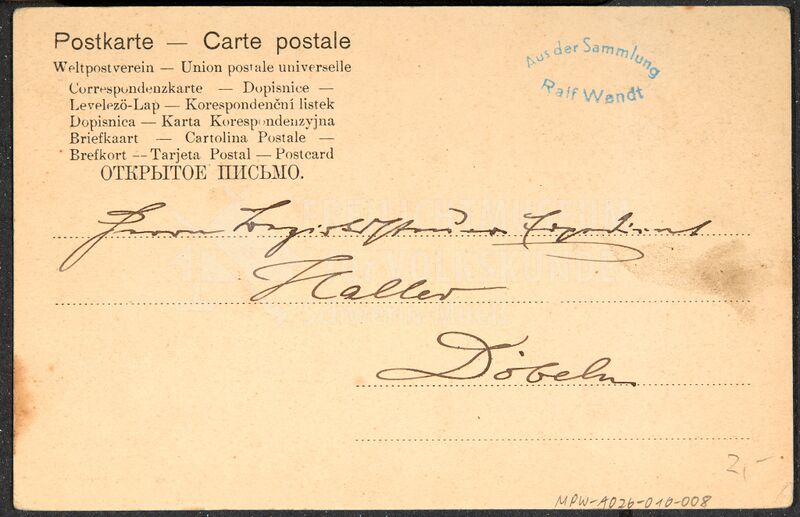 Postkarte — Carte postale
Weltpostverein — Union postale universelle
Correspondenzkarte — Dopisnice —
Levelező-Lap — Korespondenční listek
Dopisnica — Karta Korespondenzyjna
Briefkaart — Cartolina Postale —
Brefkort — Tarjeta Postal — Postcard
ОТКРЫТОЕ ПИСЬМО.
Aus der Sammlung
Ralf Wendt
FREILICHTMUSEUM
VOLKSKUNDE
Herrn Bezirkssteuer Expedient
Haller
Döbeln
2,-
MPW-A026-010-008